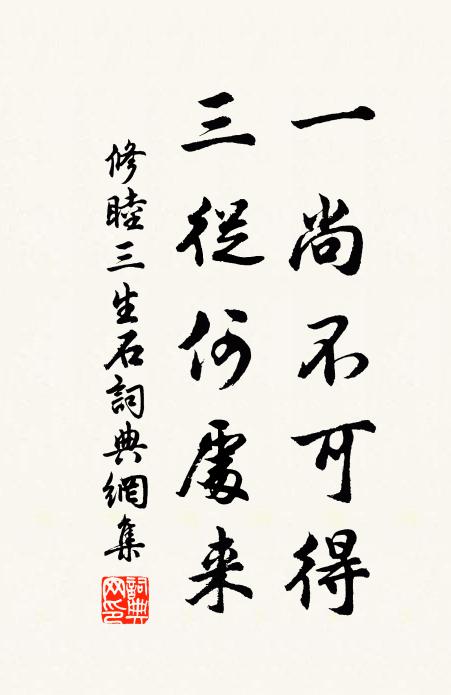 一尚不可得
三從何處来
修睦三生石詞典網集
詞典网印